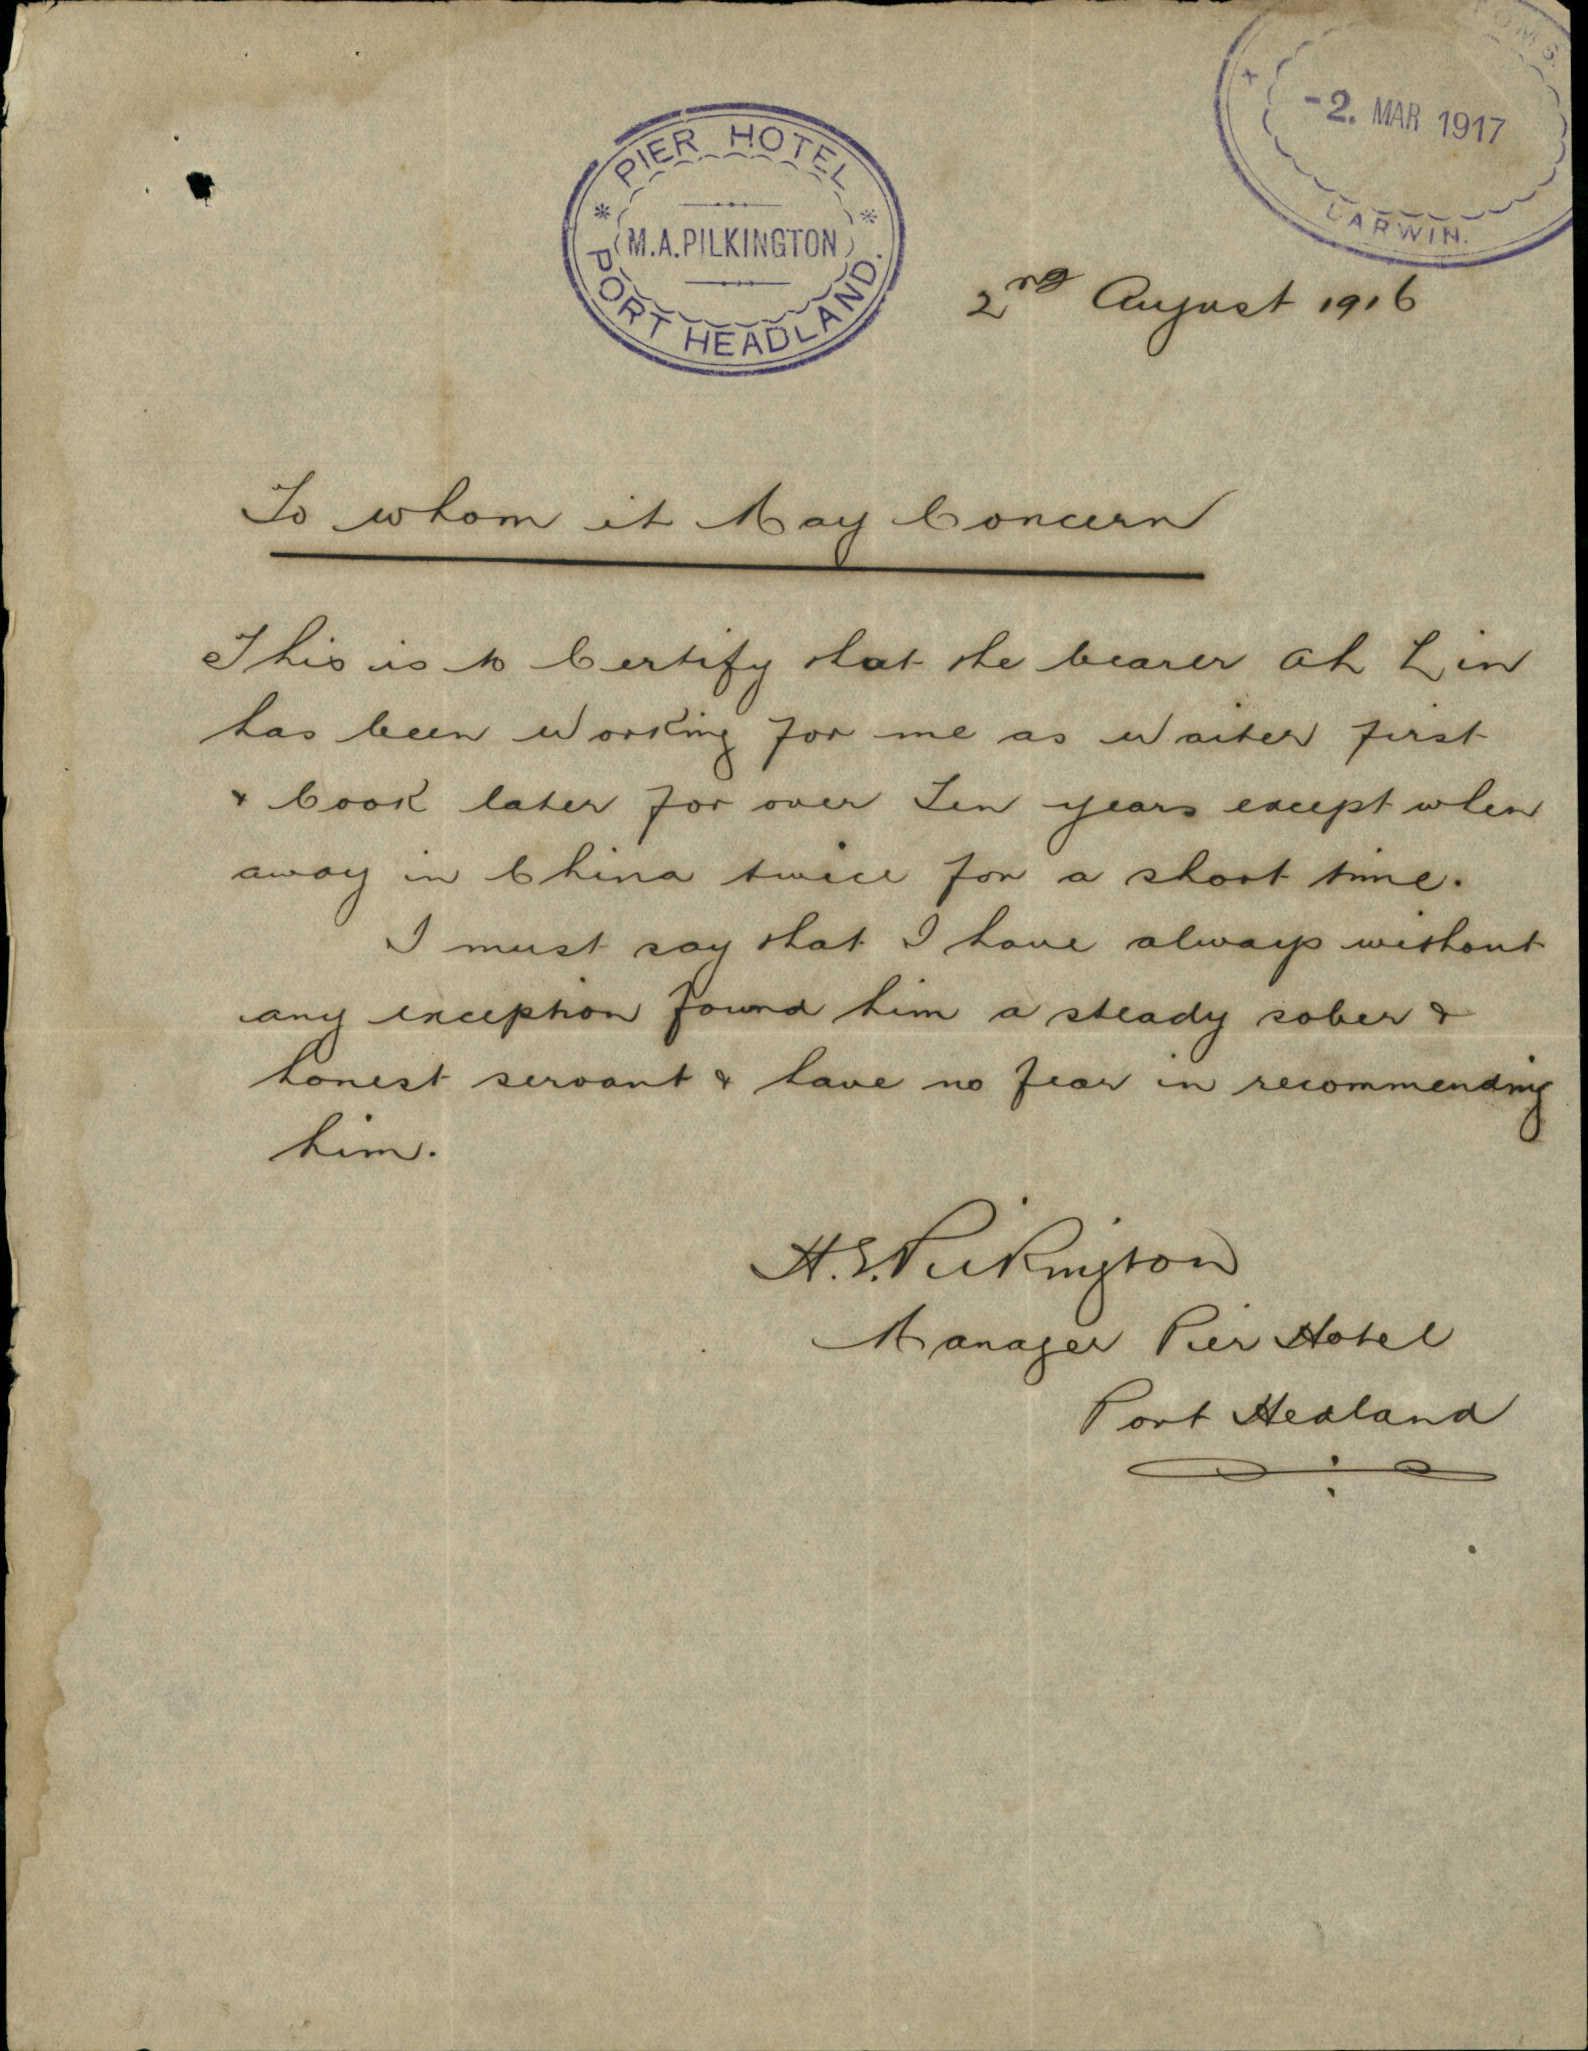 PIER HOTEL
M.A.PILKINGTON
PORT HEADLAND.
-2. MAR 1917
DARWIN.
2nd August 1916
To whom it May Concern
This is to Certify that the bearer Ah Lin
has been Working for me as Waiter first
& Cook later for over Ten years except when
away in China twice for a short time.
I must say that I have always without
any exception found him a steady sober &
honest servant & have no fear in recommending
him.
H.E. Pilkington
Manager Pier Hotel
Port Hedland